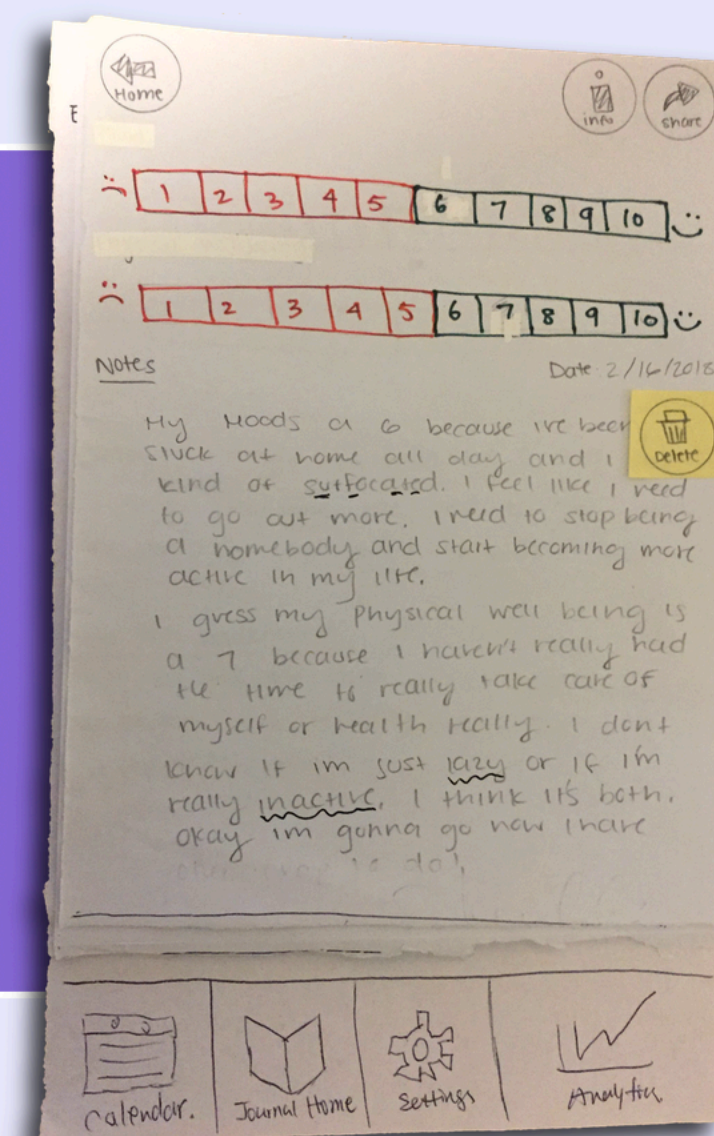 Home
info
share
E
1 2 3 4 5 6 7 8 9 10
1 2 3 4 5 6 7 8 9 10
Notes
Date 2/16/2018
Delete
My Moods a 6 because ive been
stuck at home all day and I
kind of suffocated. I feel like I need
to go out more. I need to stop being
a homebody and start becoming more
active in my life.
I guess my physical well being is
a 7 because I haven't really had
the time to really take care of
myself or health really. I dont
know if im just lazy or if I'm
really inactive. I think it's both.
okay im gonna go now I have
to do!
Calendar.
Journal Home
Settings
Analytics